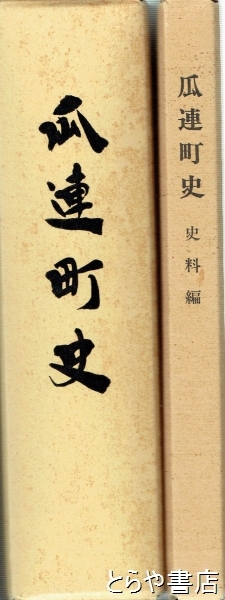 瓜連町史
瓜連町史 史料編
とらや書店